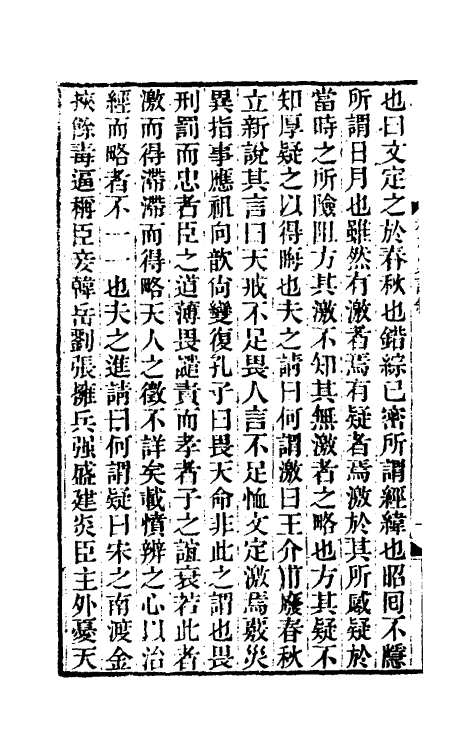 也曰文定之於春秋也錯綜已密所謂經緯也昭囘不隱
所謂日月也雖然有激者焉有疑者焉激於其所感疑於
當時之所險阻方其激不知其無激者之略也方其疑不
知厚疑之以得晦也夫之請曰何謂激曰王介甫廢春秋
立新說其言曰天戒不足畏人言不足恤文定激焉覈災
異指事應祖向歆尙變復孔子曰畏天命非此之謂也畏
刑罰而忠者臣之道薄畏譴責而孝者子之誼衰若此者
激而得滯滯而得略天人之徵不詳矣載憤辨之心以治
經而略者不一一也夫之進請曰何謂疑曰宋之南渡金
挾餘毒逼稱臣妾韓岳劉張擁兵强盛建炎臣主外憂天